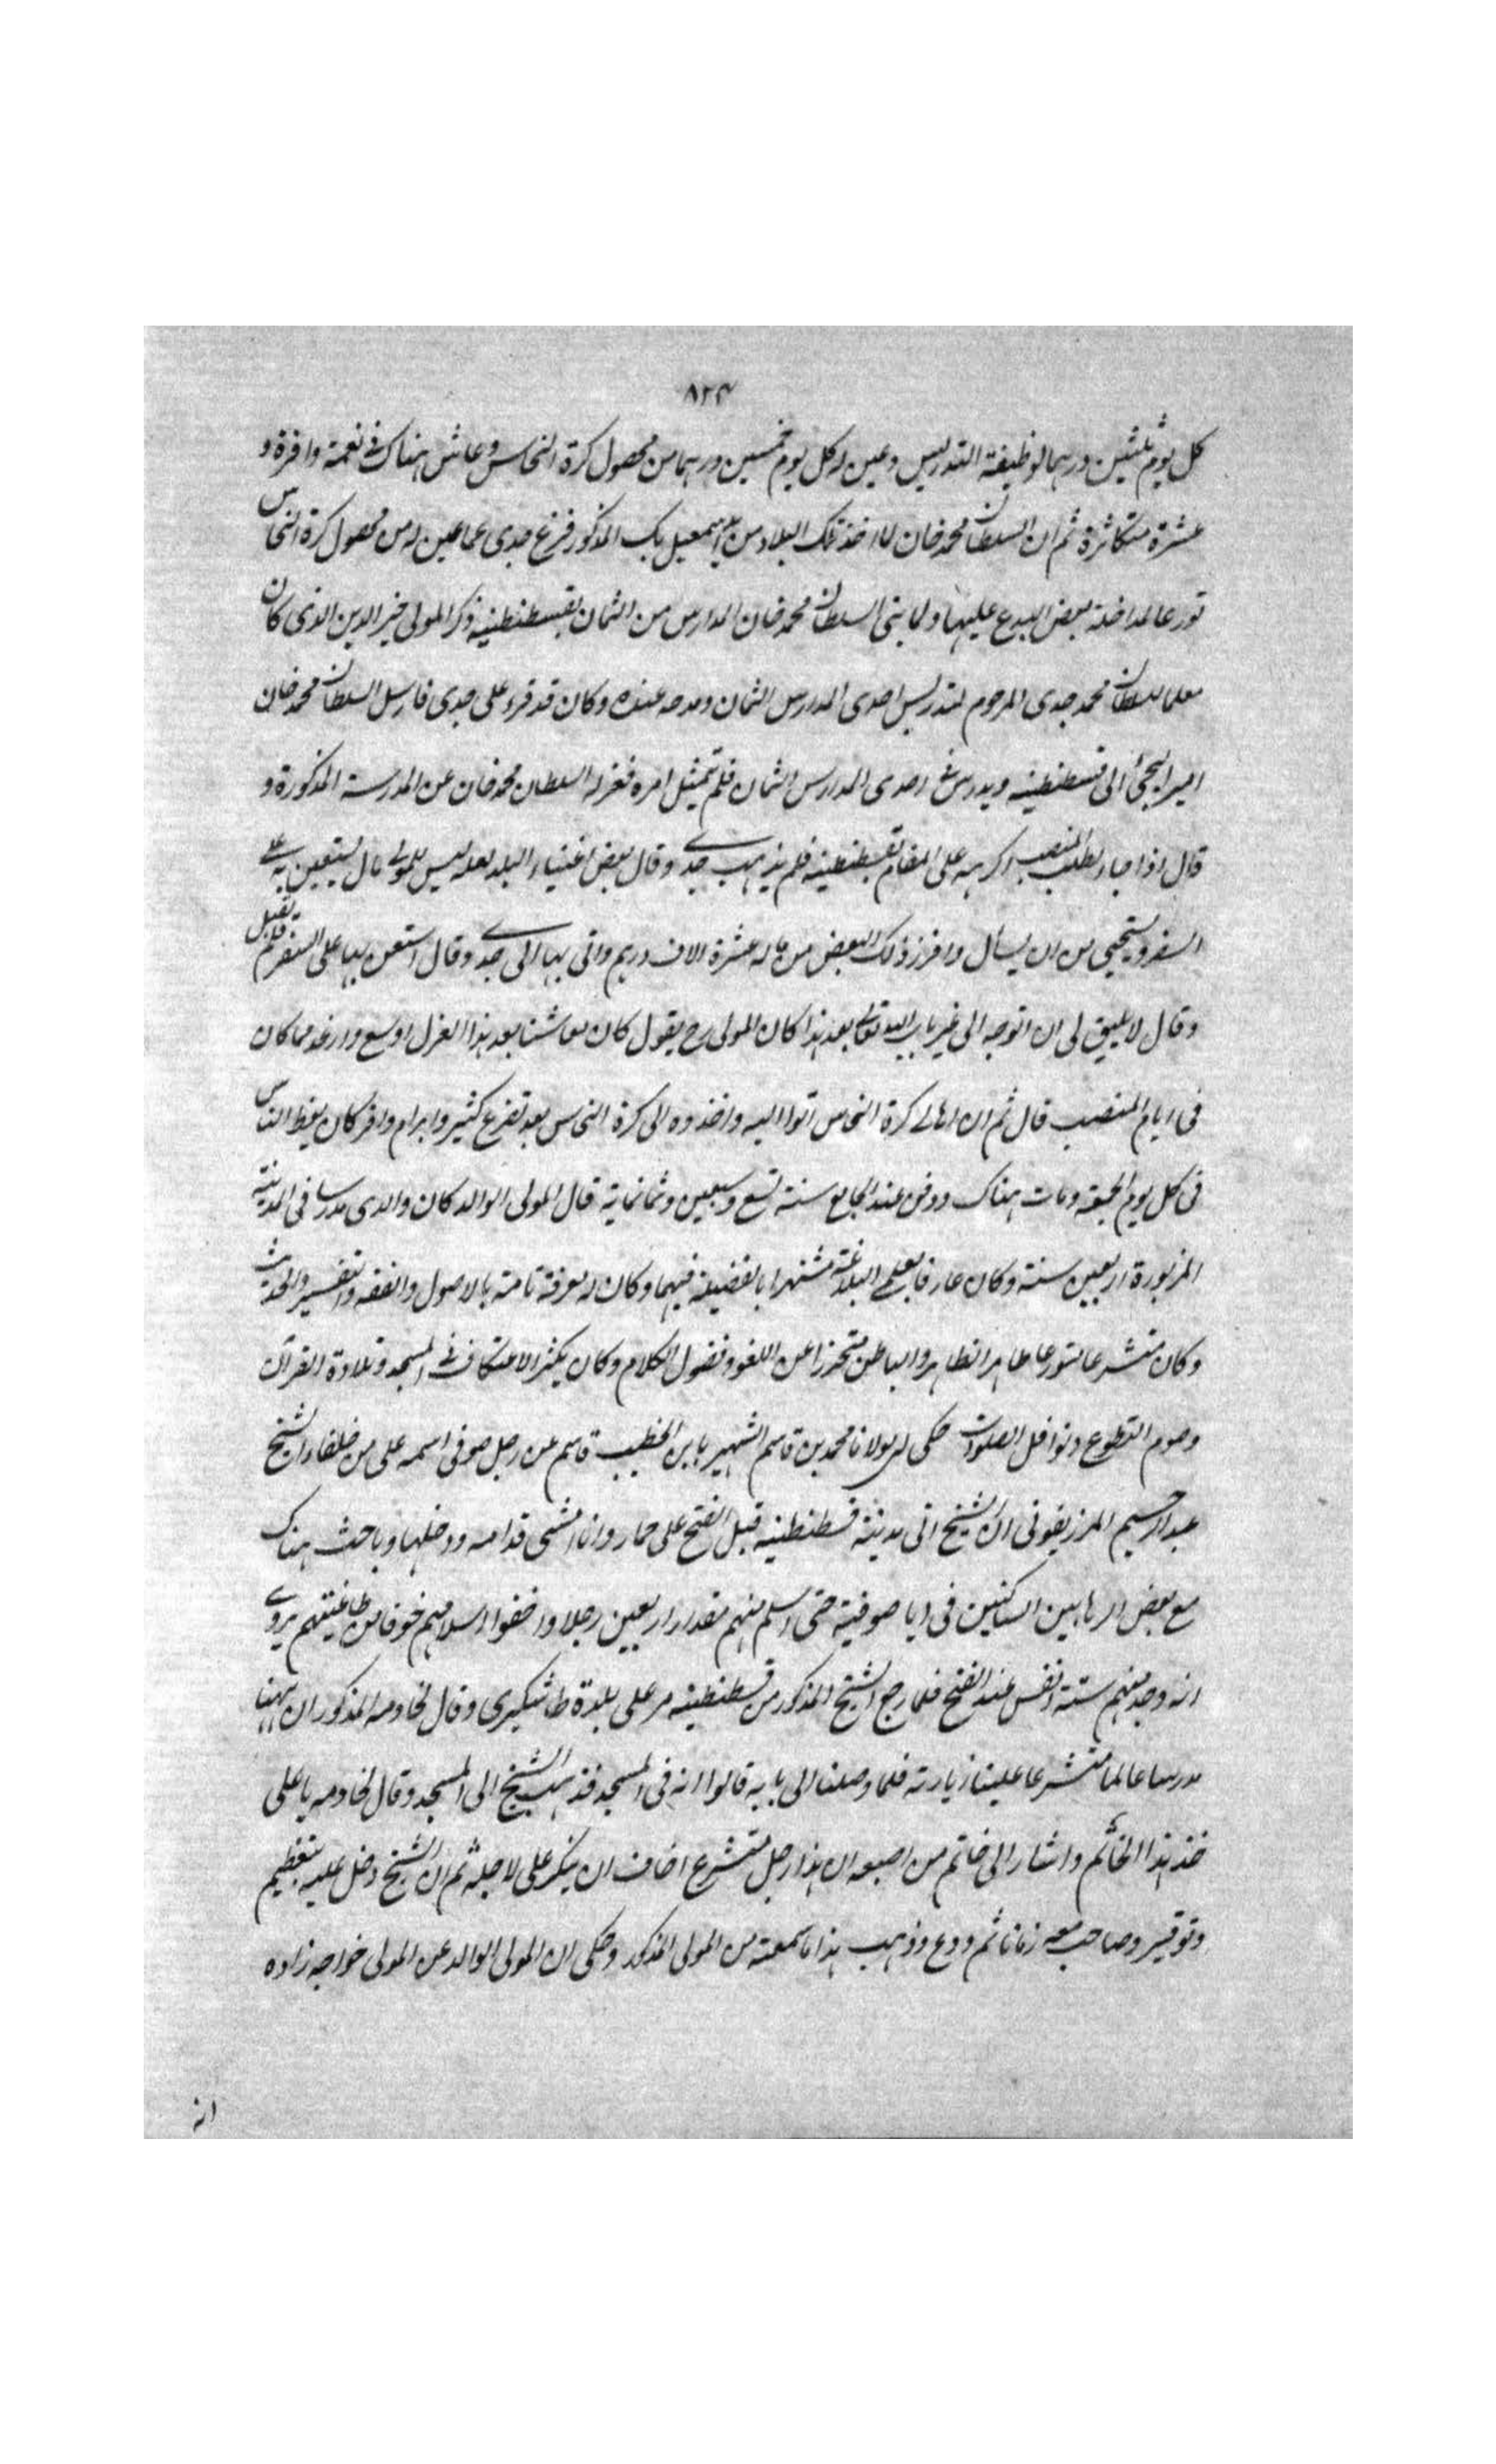 ٨٢٣
كل يوم ثلثين درهما لوظيفة التدريس وعين له كل يوم خمسين درهما من محصول كرة النحاس وعاش هناك فى نعمة وافرة و
عشرة متكاثرة ثم ان السلطان محمد خان لما اخذ تلك البلاد من يد اسمعيل بك المذكور فرغ جدى عما عين له من محصول كرة النحاس
تورعا لمداخلة بعض البدع عليها ولما بنى السلطان محمد خان المدارس من الثمان بقسطنطينيه ذكر المولى خير الدين الذى كان
معلما للسلطان محمد جدى المرحوم لتدريس احدى المدارس الثمان ومدحه عنده وكان قد قرء على جدى فارسل السلطان محمد خان
اليجئ الى قسطنطينيه ويدرس فى احدى المدارس الثمان فلم يمتثل امره فعزله السلطان محمد خان عن المدرسة المذكورة و
قال اذا جاء لطلب المنصب اكرهه على المقام بقسطنطينيه فلم يذهب جدى وقال بعض اغنياء البلد لعله ليس للمولى مال يستعين به على
السفر ويستحيى من ان يسأل وافرز ذلك البعض من ماله عشرة الاف درهم واتى بها الى جدى وقال استعن بها على السفر فلم يقبل
وقال لا يليق لى ان اتوجه الى غير باب الله تعالى بعد هذا كان المولى رح يقول كان معاشنا بعد هذا العزل اوسع وارغد مما كان
فى ايام المنصب قال ثم ان اهالى كرة النحاس اتوا اليه واخذوه الى كرة النحاس بعد تضرع كثير وابرام وافر كان يعظ الناس
فى كل يوم الجمعة ومات هناك ودفن عند الجامع سنة تسع وسبعين وثمانماية قال المولى الوالد كان والدى مدرسا فى المدينة
المزبورة اربعين سنة وكان عارفا بعلم البلاغة مشتهرا بالفضيلة فيهما وكان له معرفة تامة بالاصول والفقه والتفسير والحديث
وكان متشرعا متورعا طاهر الظاهر والباطن متحرزا عن اللغو وفضول الكلام وكان يكثر الاعتكاف فى المسجد وتلاوة القرآن
وصوم التطوع ونوافل الصلوات حكى لى مولانا محمد بن قاسم الشهير بابن الخطيب قاسم عن رجل صوفى اسمه على من خلفاء الشيخ
عبد الرحيم المرزيفونى ان الشيخ اتى مدينة قسطنطينيه قبل الفتح على حمار وانا امشى قدامه ودخلها وباحث هناك
مع بعض الرهابين الساكنين فى ايا صوفية حتى اسلم منهم مقدار اربعين رجلا واخفوا اسلامهم خوفا من طاغيتهم يروى
انه وجد منهم ستة انفس عند الفتح فلما رجع الشيخ المذكور من قسطنطينيه مر على بلدة طاشكبرى وقال لخادمه المذكور ان ههنا
مدرسا عالما متشرعا علينا زيارته فلما وصلنا الى بابه قالوا انه فى المسجد فذهب الشيخ الى المسجد وقال لخادمه يا على
خذ هذا الخاتم واشار الى خاتم من اصبعه ان هذا رجل متشرع اخاف ان ينكر على لاجله ثم ان الشيخ دخل عليه بتعظيم
وتوقير وصاحب معه زمانا ثم ودع وذهب هذا ما سمعته من المولى المذكور وحكى ان المولى الوالد عن المولى خواجه زاده
انه